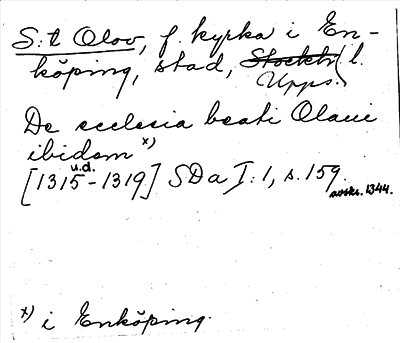 S:t Olov, f. kyrka i En-
köping, stad, Stockh. l.
Upps.
De ecclesia beati Olaui
ibidem x)
u.d.
[1315-1319] SDa I:1, s. 159.
avskr. 1344.
x) i Enköping.